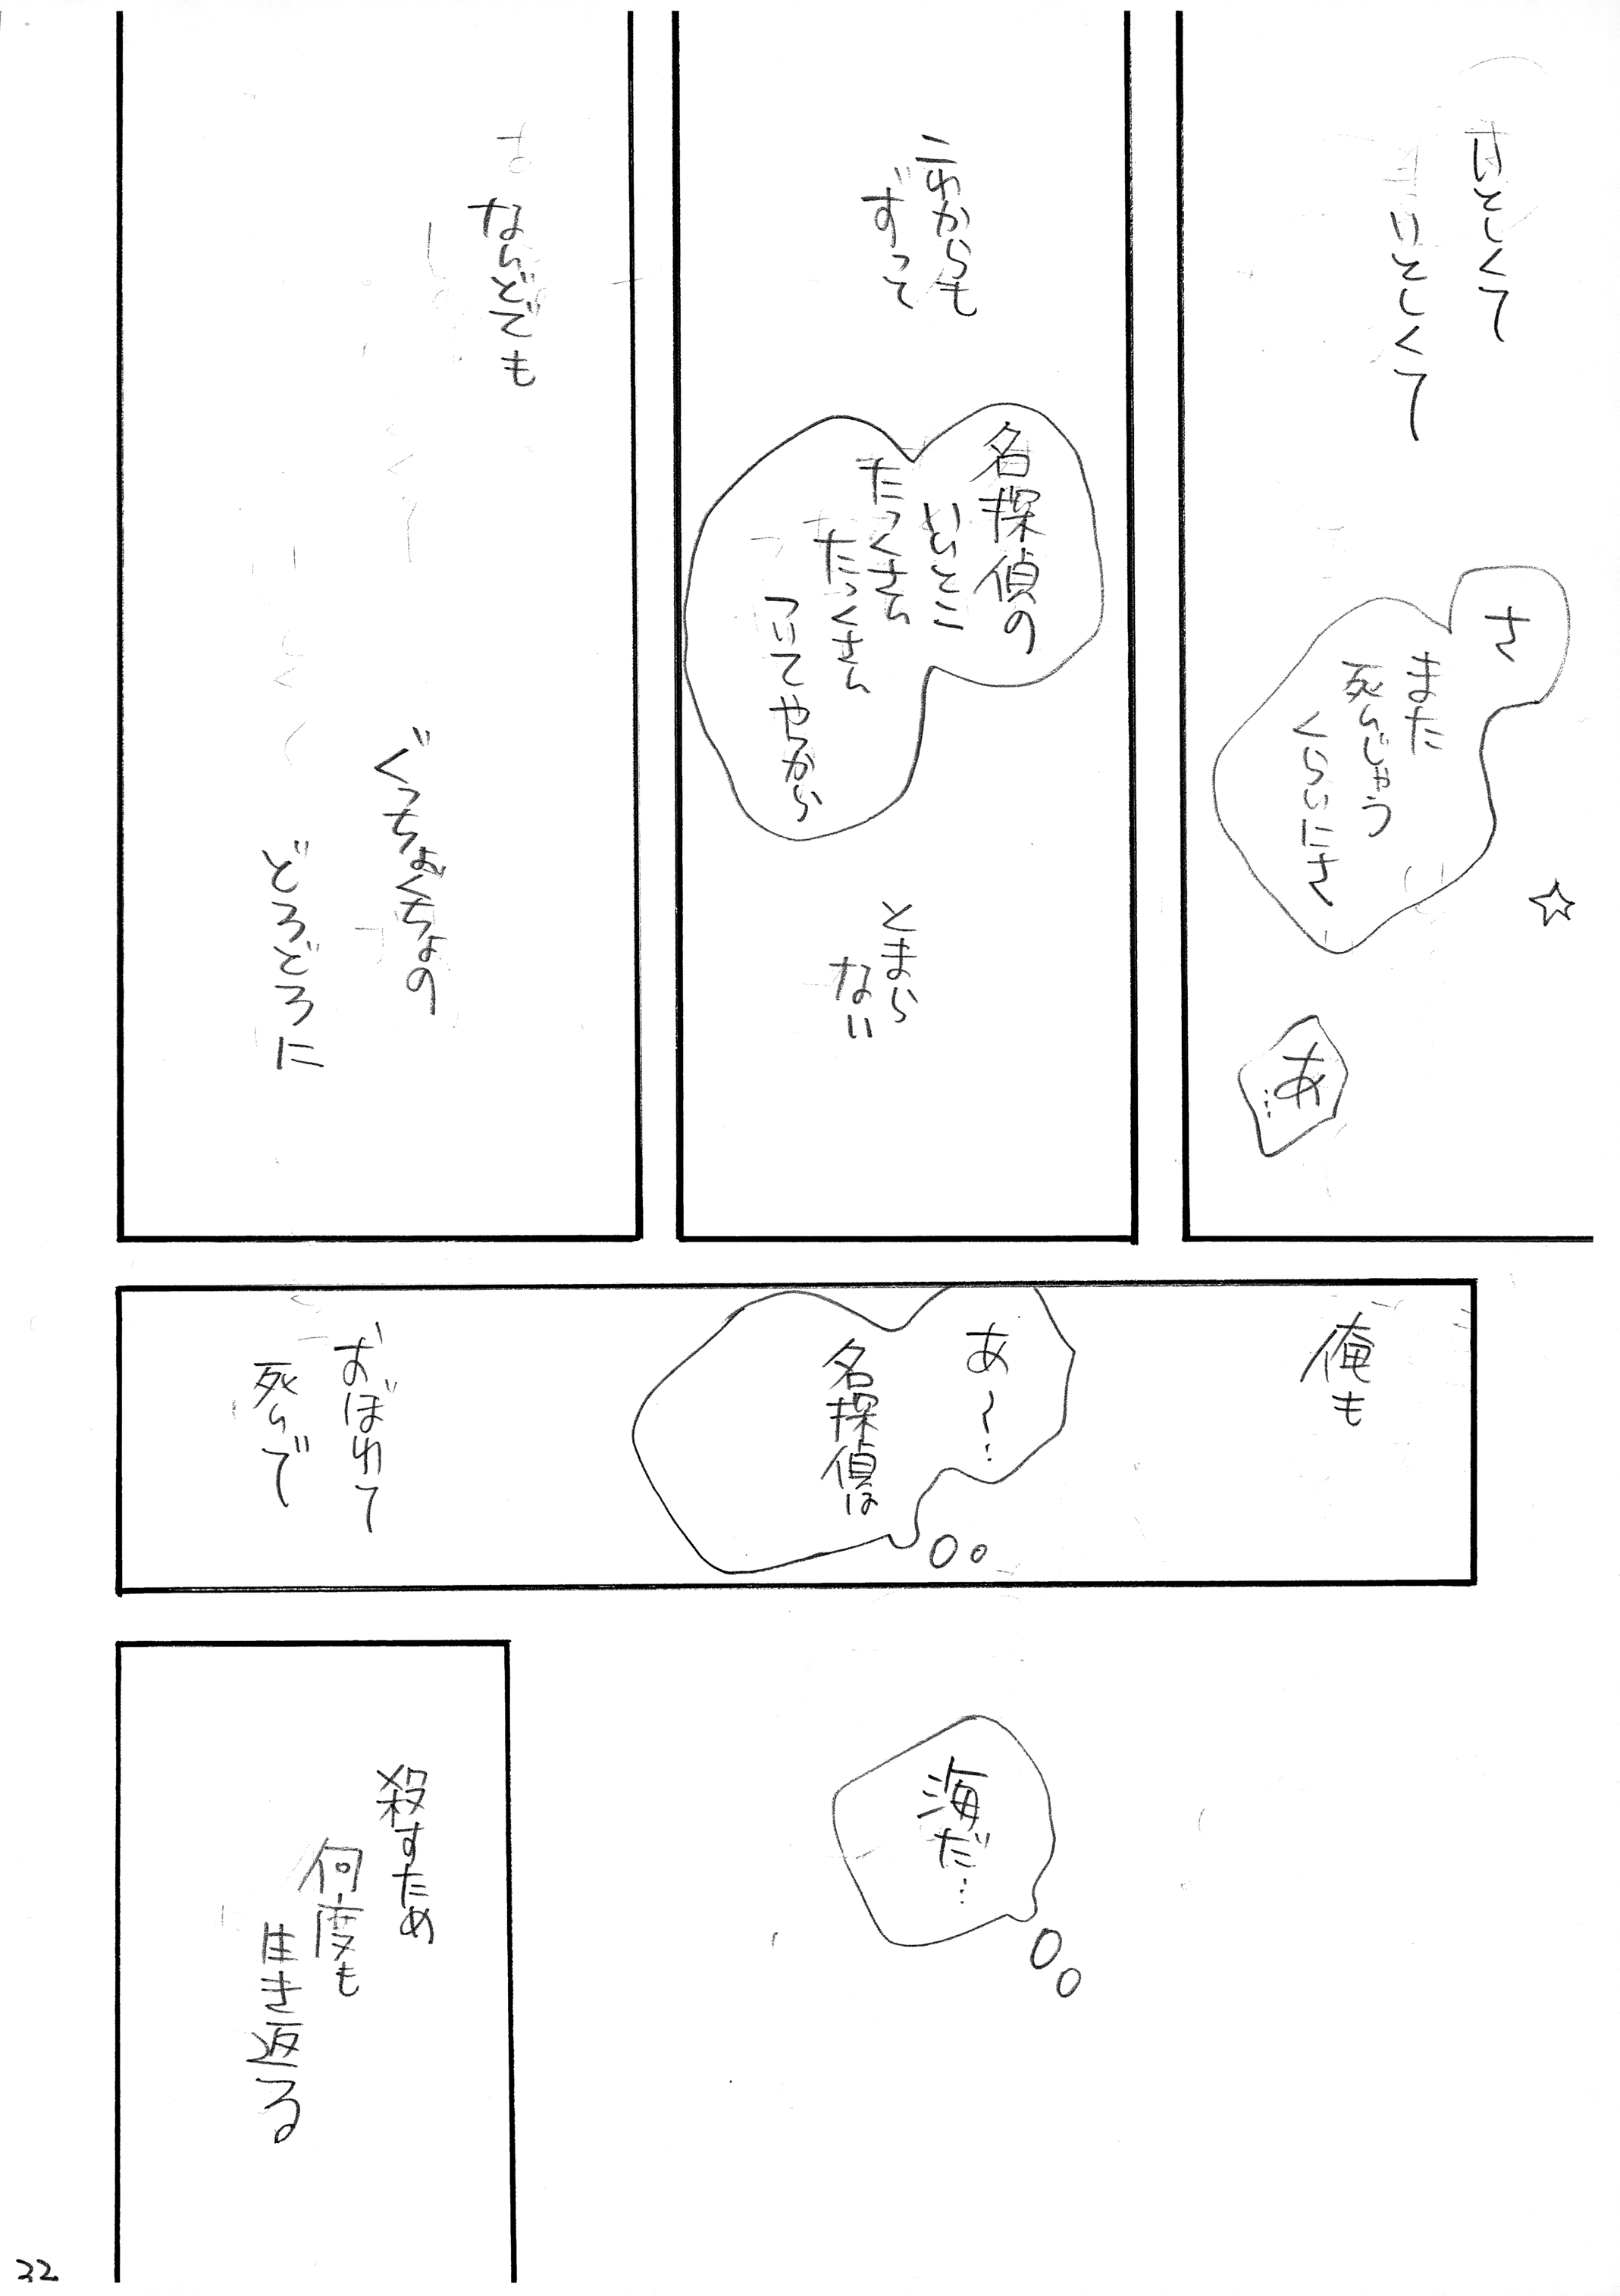 いとしくて
いとしくて
さ
また
死んじゃう
くらいにさ
☆
あ…
これからも
ずっと
名探偵の
いいとこ
たっくさん
たっくさん
ついてやっから
とまら
ない
なんどでも
ぐっちょぐちょの
どろどろに
俺も
あ〜…
名探偵は
おぼれて
死んで
海だ…
殺すため
何度も
生き返る
32